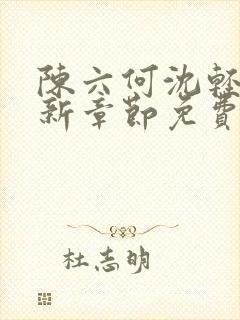 陳六何沈輕
新章節免費
杜志明